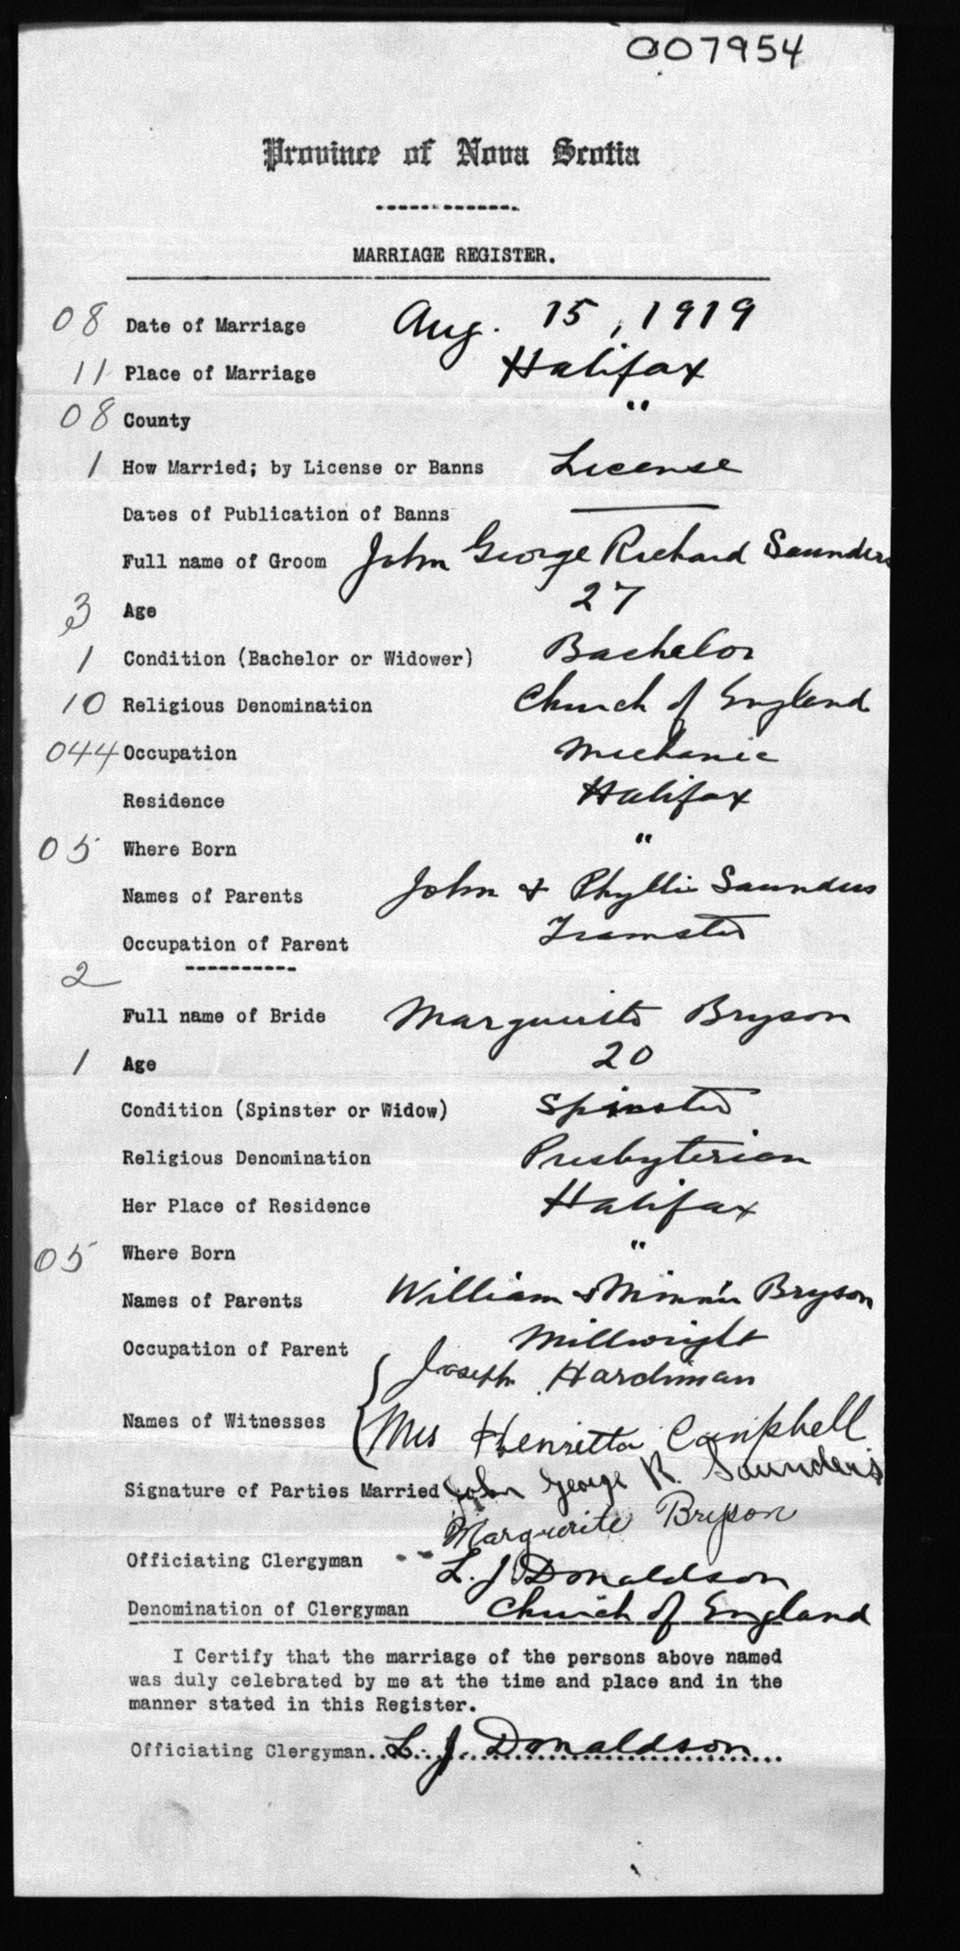 007954
Province of Nova Scotia
MARRIAGE REGISTER.
08 Date of Marriage Aug. 15, 1919
11 Place of Marriage Halifax
08 County "
1 How Married; by License or Banns License
Dates of Publication of Banns
Full name of Groom John George Richard Saunders
3 Age 27
1 Condition (Bachelor or Widower) Bachelor
10 Religious Denomination Church of England
044 Occupation Mechanic
Residence Halifax
05 Where Born "
Names of Parents John & Phyllis Saunders
Occupation of Parent Teamster
2
Full name of Bride Marguerite Bryson
1 Age 20
Condition (Spinster or Widow) Spinster
Religious Denomination Presbyterian
Her Place of Residence Halifax
05 Where Born "
Names of Parents William & Minnie Bryson
Occupation of Parent Millwright
Joseph Hardiman
Names of Witnesses Mrs Henrietta Campbell
Signature of Parties Married John George R. Saunders
Marguerite Bryson
Officiating Clergyman L. J. Donaldson
Denomination of Clergyman Church of England
I Certify that the marriage of the persons above named
was duly celebrated by me at the time and place and in the
manner stated in this Register.
Officiating Clergyman L. J. Donaldson